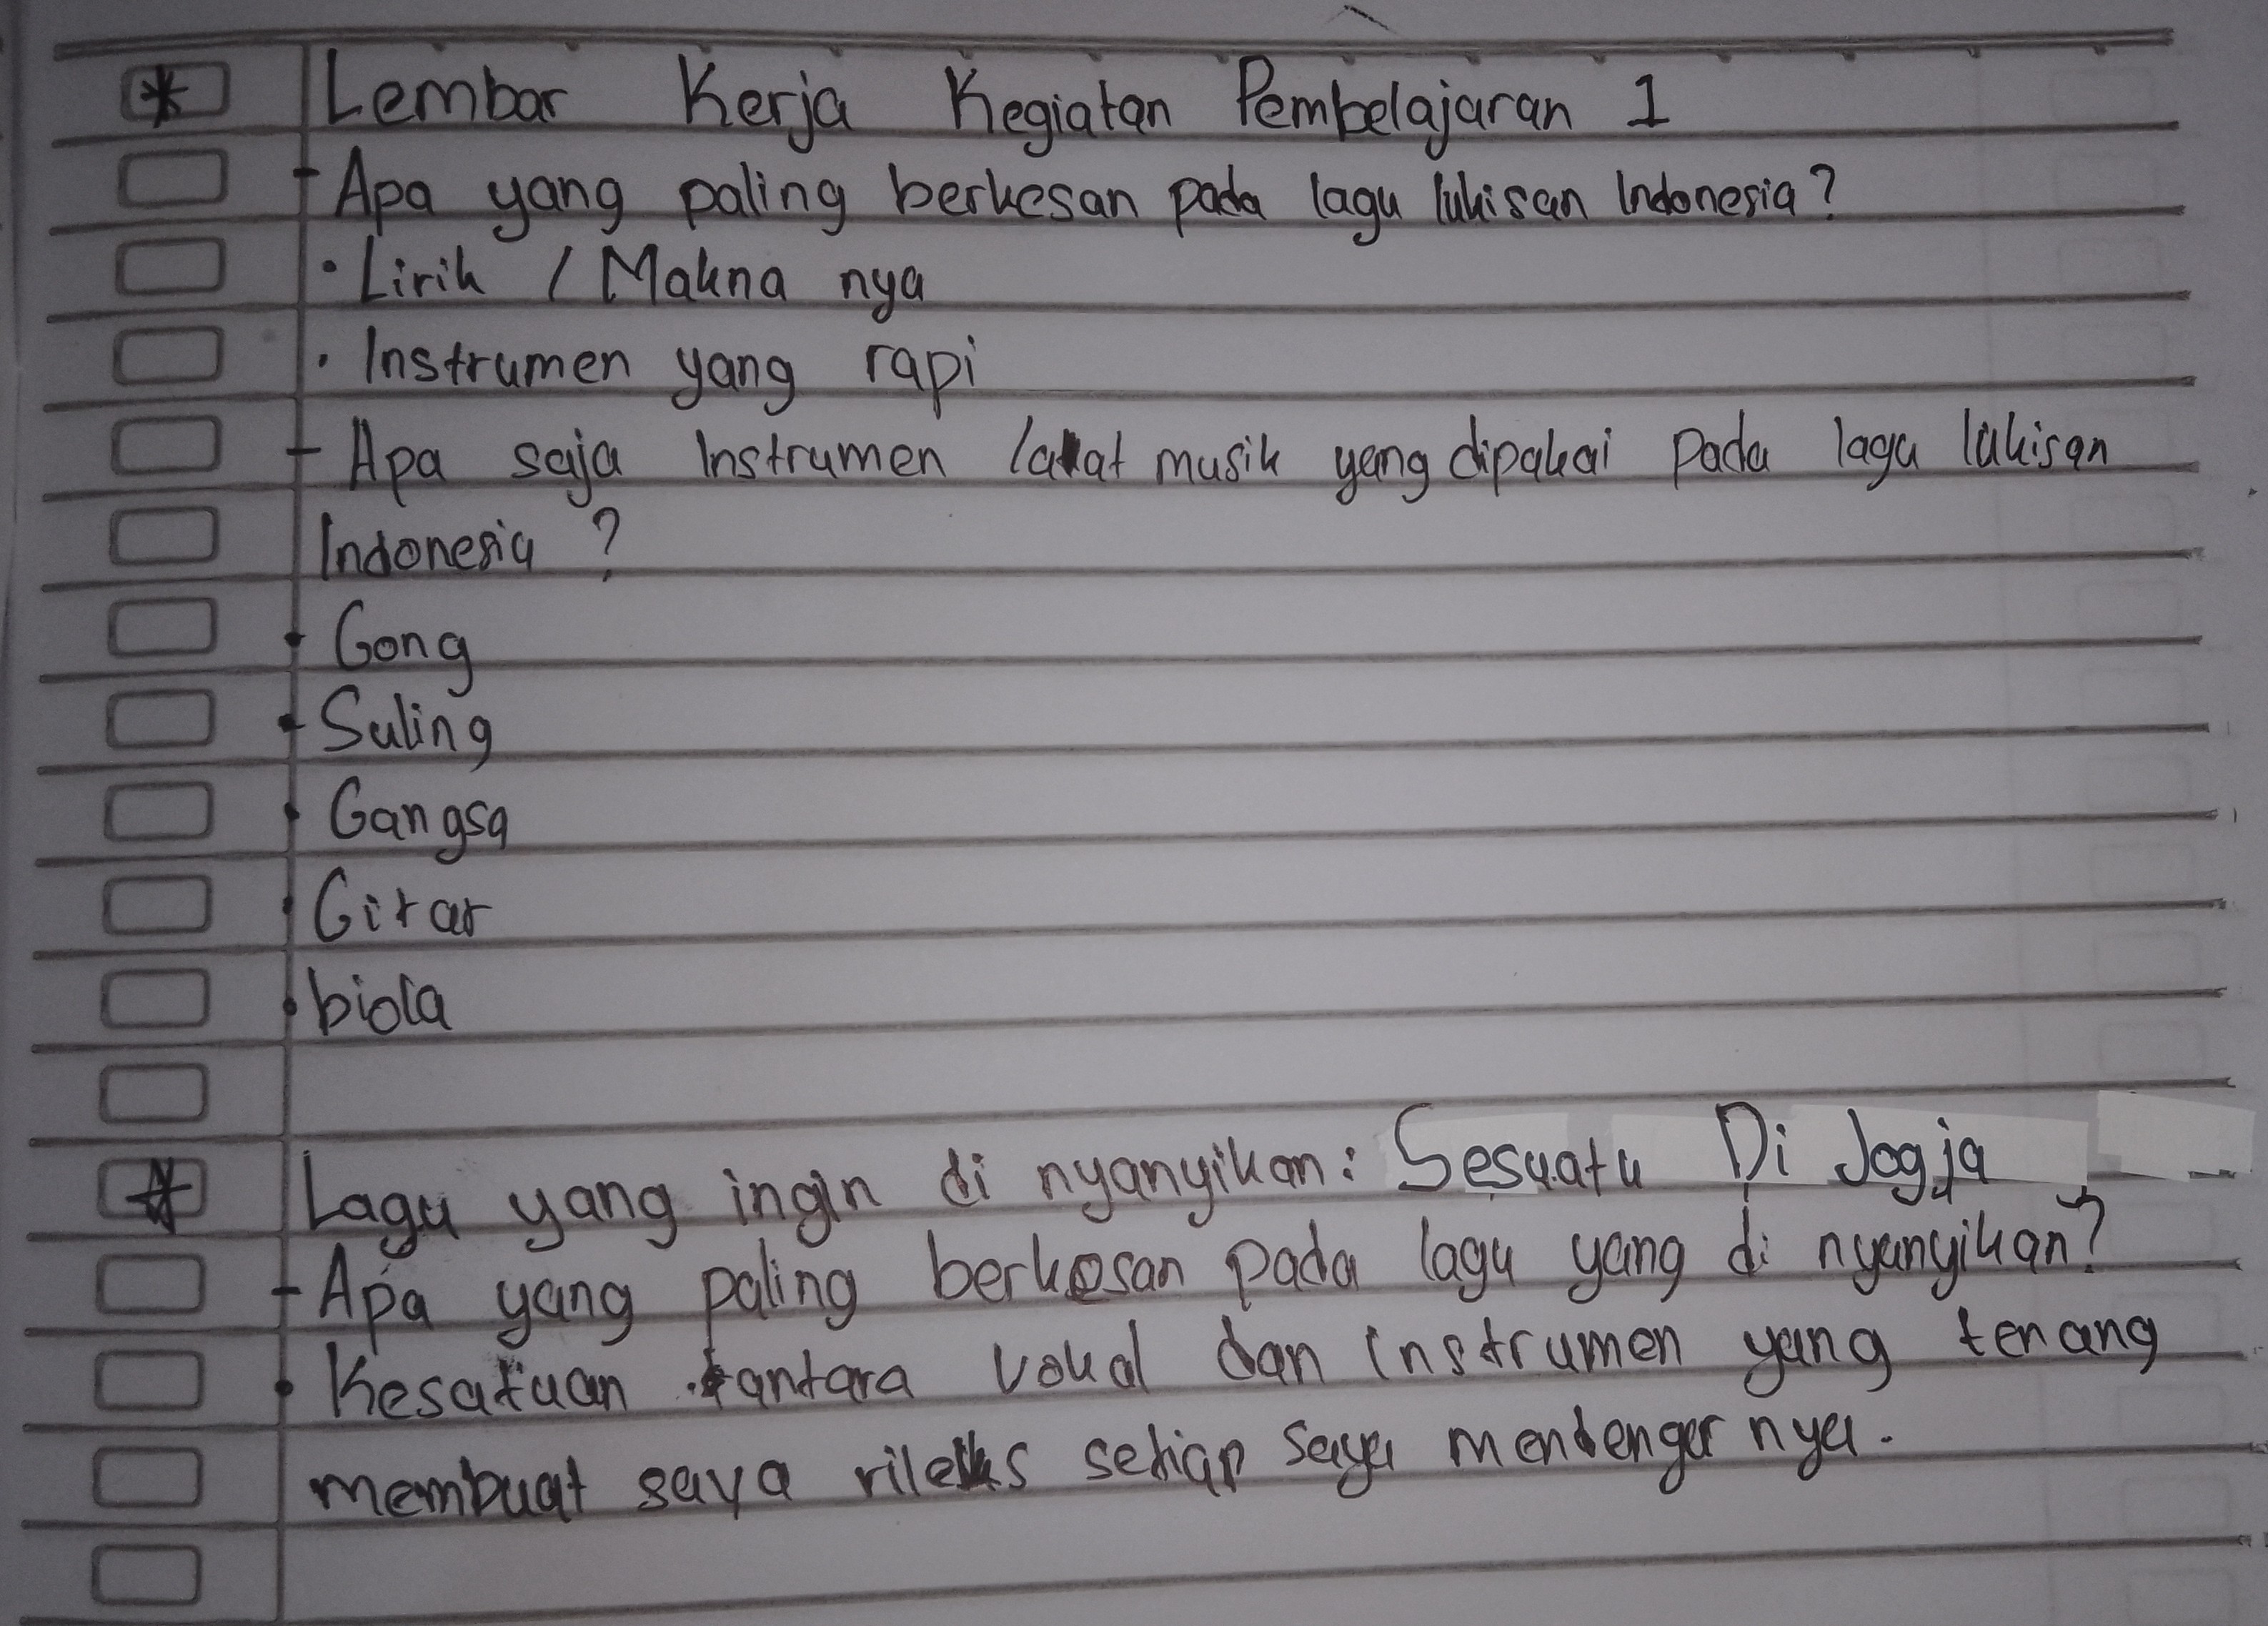 * Lembar Kerja Kegiatan Pembelajaran 1
- Apa yang paling berkesan pada lagu lukisan Indonesia?
• Lirik / Makna nya
• Instrumen yang rapi
- Apa saja Instrumen / alat musik yang dipakai pada lagu lukisan
Indonesia ?
• Gong
• Suling
• Gangsa
• Gitar
• biola
* Lagu yang ingin di nyanyikan: Sesuatu Di Jogja
- Apa yang paling berkesan pada lagu yang di nyanyikan?
• Kesatuan antara vokal dan instrumen yang tenang
membuat saya rileks setiap saya mendengar nya.